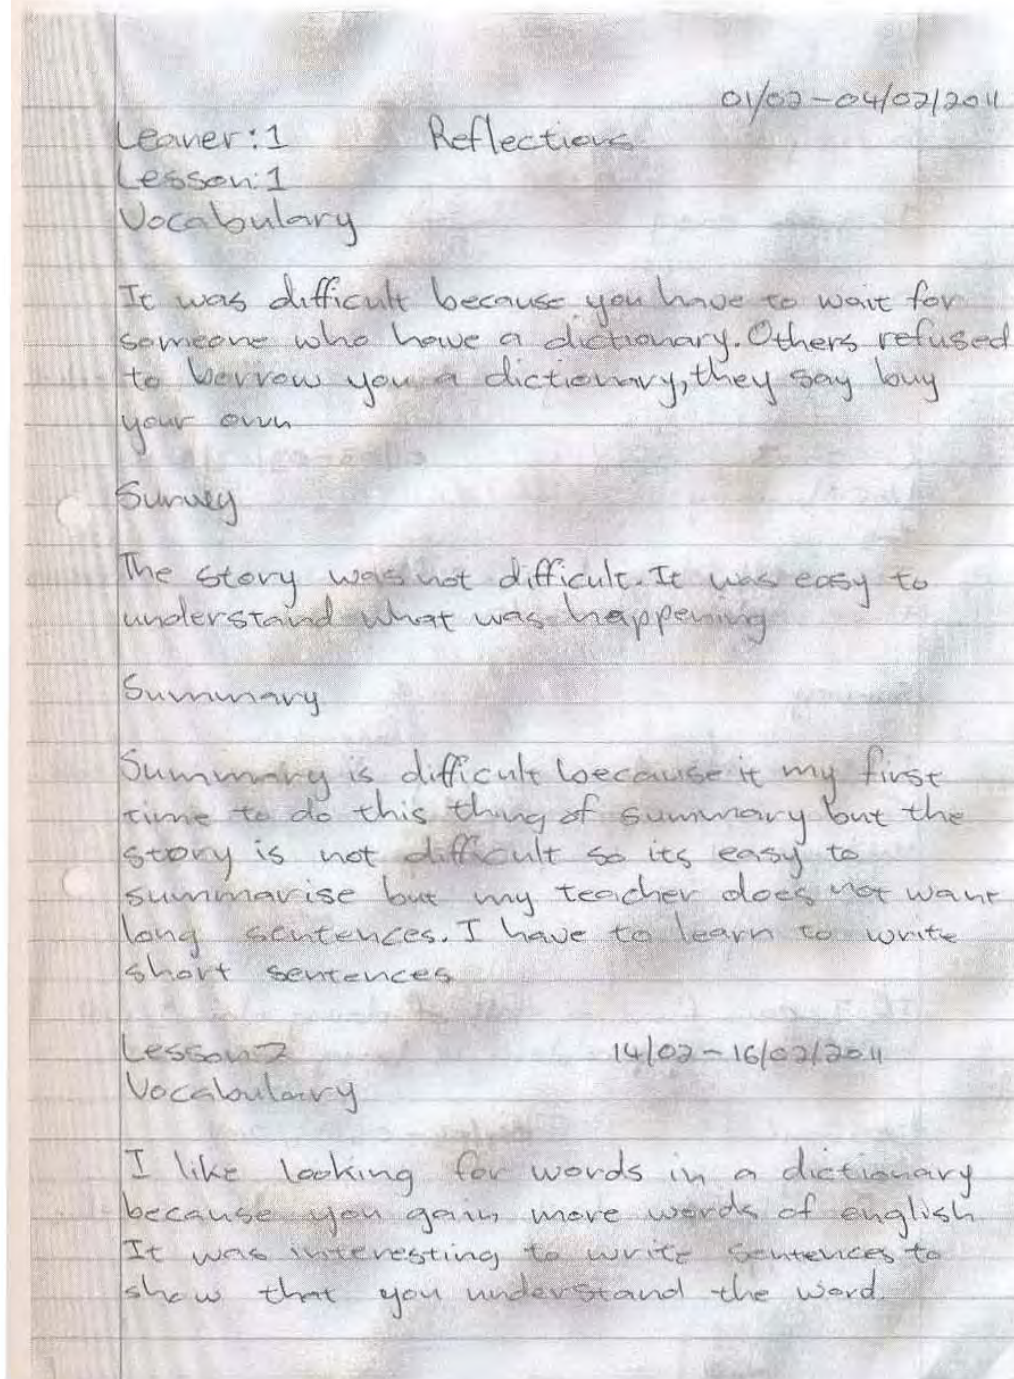 01/02-04/02/2011
Leaner:1 Reflections
Lesson:1
Vocabulary
It was difficult because you have to wait for
someone who have a dictionary. Others refused
to borrow you a dictionary, they say buy
your own
Survey
The story was not difficult. It was easy to
understand what was happening
Summary
Summary is difficult because it my first
time to do this thing of summary but the
story is not difficult so its easy to
summarise but my teacher does not want
long sentences. I have to learn to write
short sentences
Lesson:2 14/02-16/02/2011
Vocabulary
I like looking for words in a dictionary
because you gain more words of english
It was interesting to write sentences to
show that you understand the word.